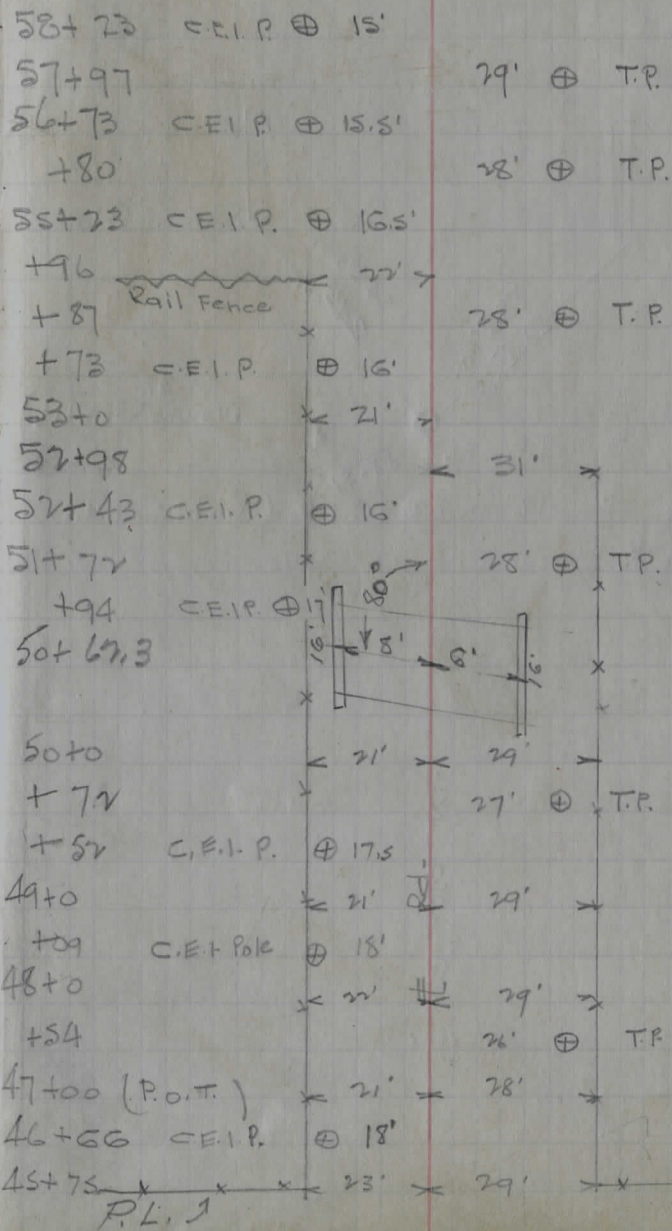 58+23 C.E.I.P. ⊕ 15'
57+97 29' ⊕ T.P.
56+73 C.E.I.P. ⊕ 15.5'
+80 28' ⊕ T.P.
55+23 C.E.I.P. ⊕ 16.5'
+96 22'
Rail Fence
+87 28' ⊕ T.P.
+73 C.E.I.P. ⊕ 16'
53+0 21'
52+98 31'
52+43 C.E.I.P. ⊕ 16'
51+72 28' ⊕ T.P.
80°
+94 C.E.I.P. ⊕ 17'
50+62.3 16' 8' 6' 16'
50+0 21' 29'
+72 27' ⊕ T.P.
+52 C.E.I.P. ⊕ 17.5
49+0 21' Rd. 29'
+09 C.E.I. Pole ⊕ 18'
48+0 22' 29'
+54 26' ⊕ T.P.
47+00 (P.O.T.) 21' 28'
46+66 C.E.I.P. ⊕ 18'
45+75 23' 29'
P.L.